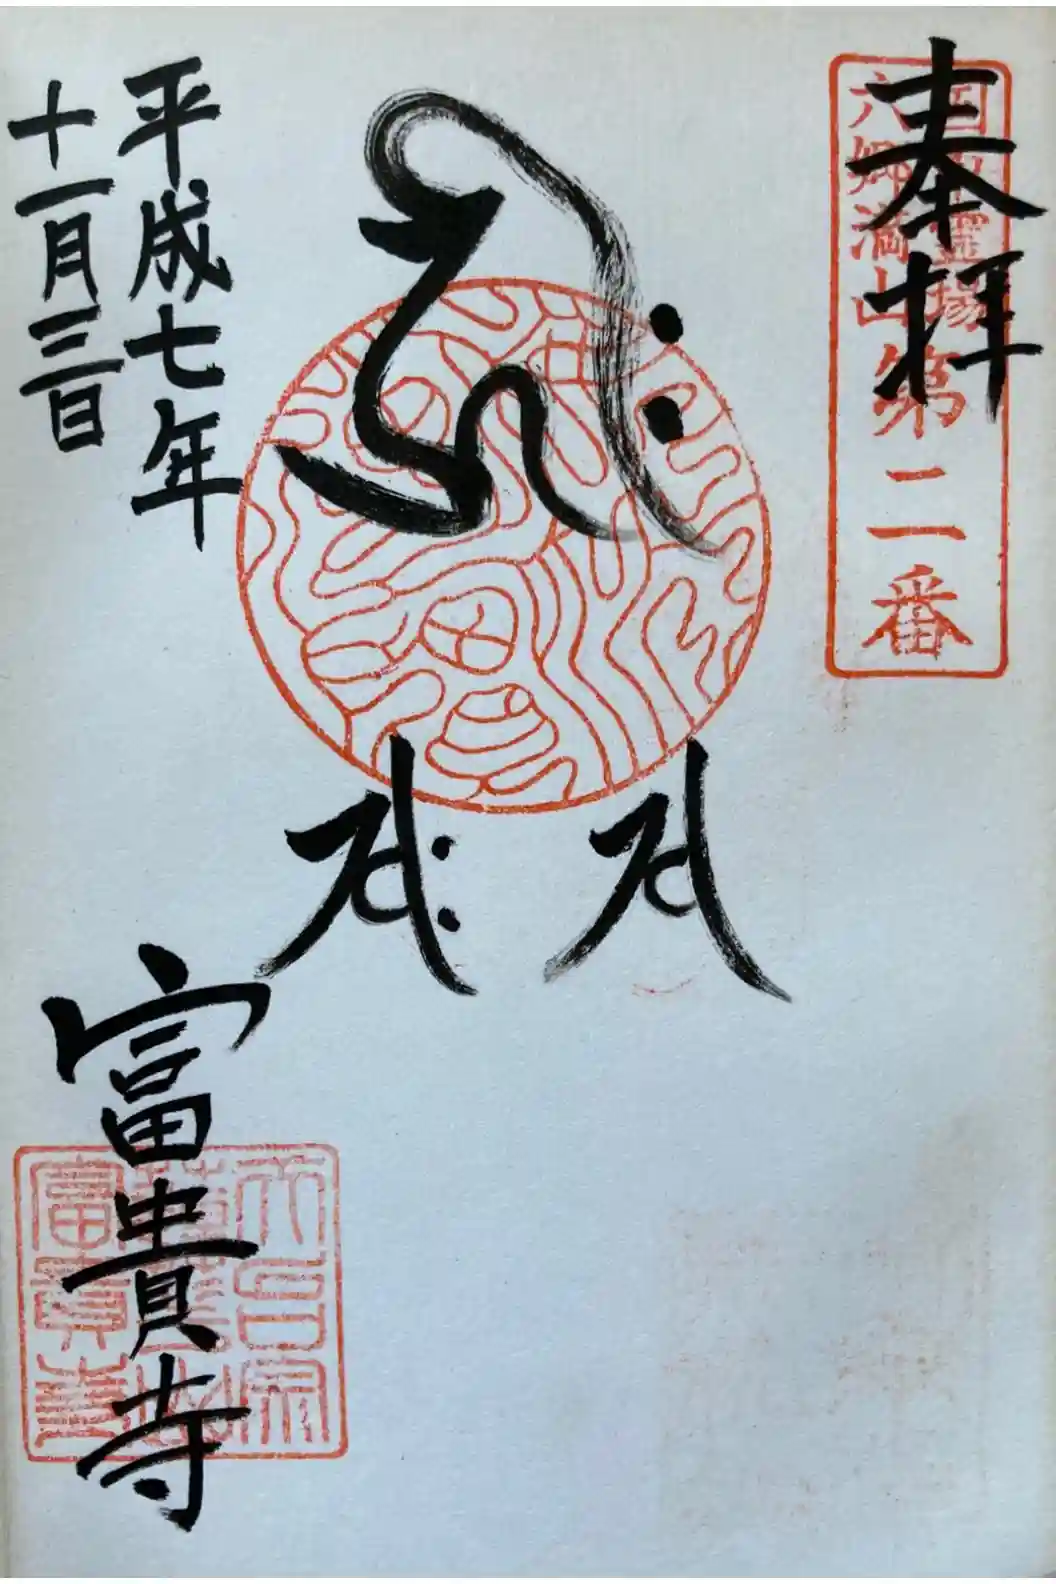 奉拝
国東霊場
六郷満山
第二番
𑖮𑖿𑖨𑖱𑖾
𑖭
𑖭𑖾
平成七年
十一月三日
富貴寺
天台宗
蓮華山
富貴寺